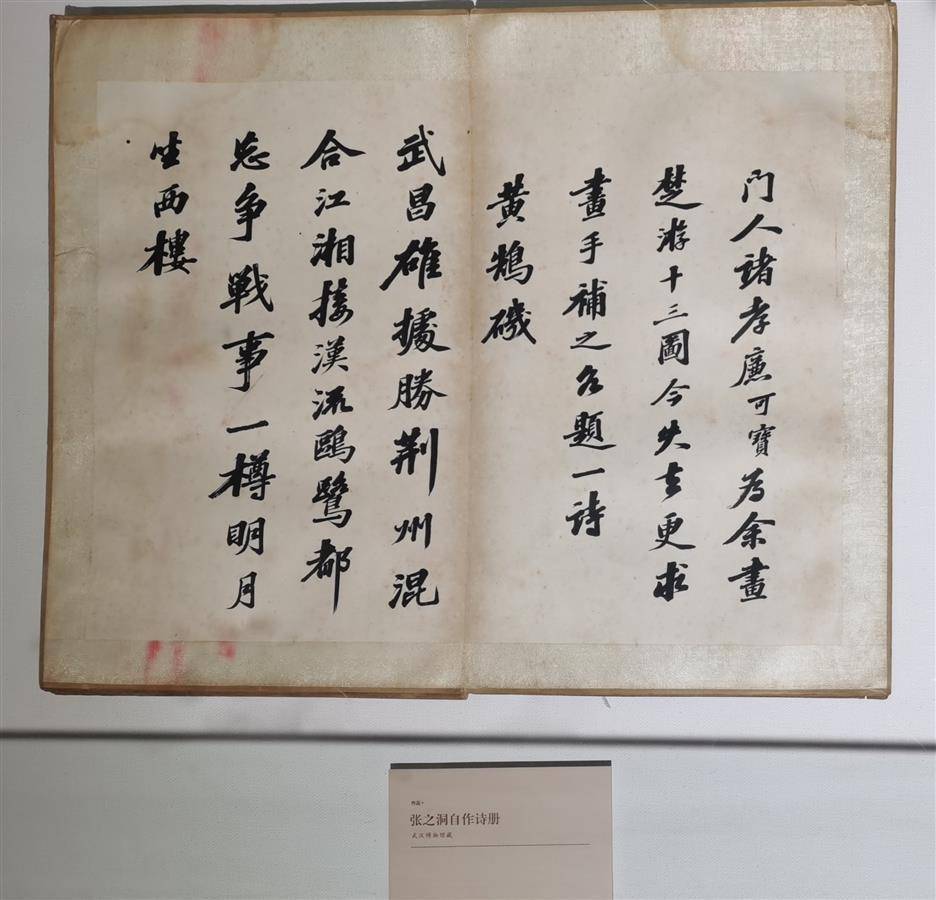 門人諸孝廉可寶為余畫
楚游十三圖今失去更求
畫手補之各題一詩
黃鵠磯
武昌雄據勝荆州混
合江湘接漢流鷗鷺都
忘争戰事一樽明月
坐西樓
作品·
张之洞自作诗册
武汉博物馆藏